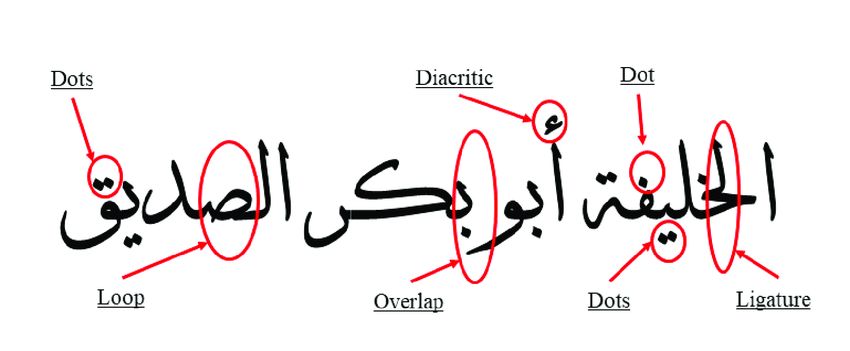 Dots Diacritic Dot
الخليفة أبو بكر الصديق
Loop Overlap Dots Ligature